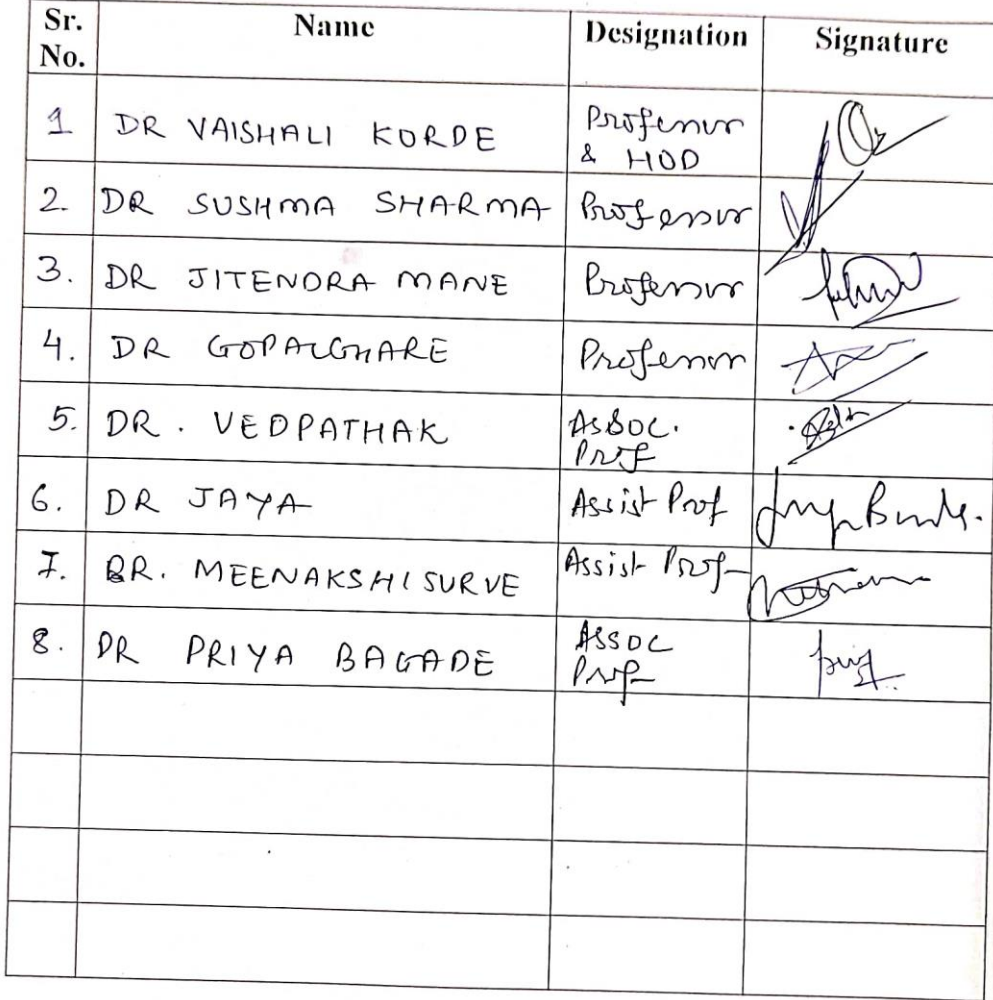 Sr. No. Name Designation Signature
1 DR VAISHALI KORDE Professor & HOD
2. DR SUSHMA SHARMA Professor
3. DR JITENDRA MANE Professor
4. DR GOPALGHARE Professor
5. DR. VEDPATHAK Assoc. Prof
6. DR JAYA Assist Prof
7. DR. MEENAKSHI SURVE Assist Prof
8. DR PRIYA BAGADE Assoc Prof